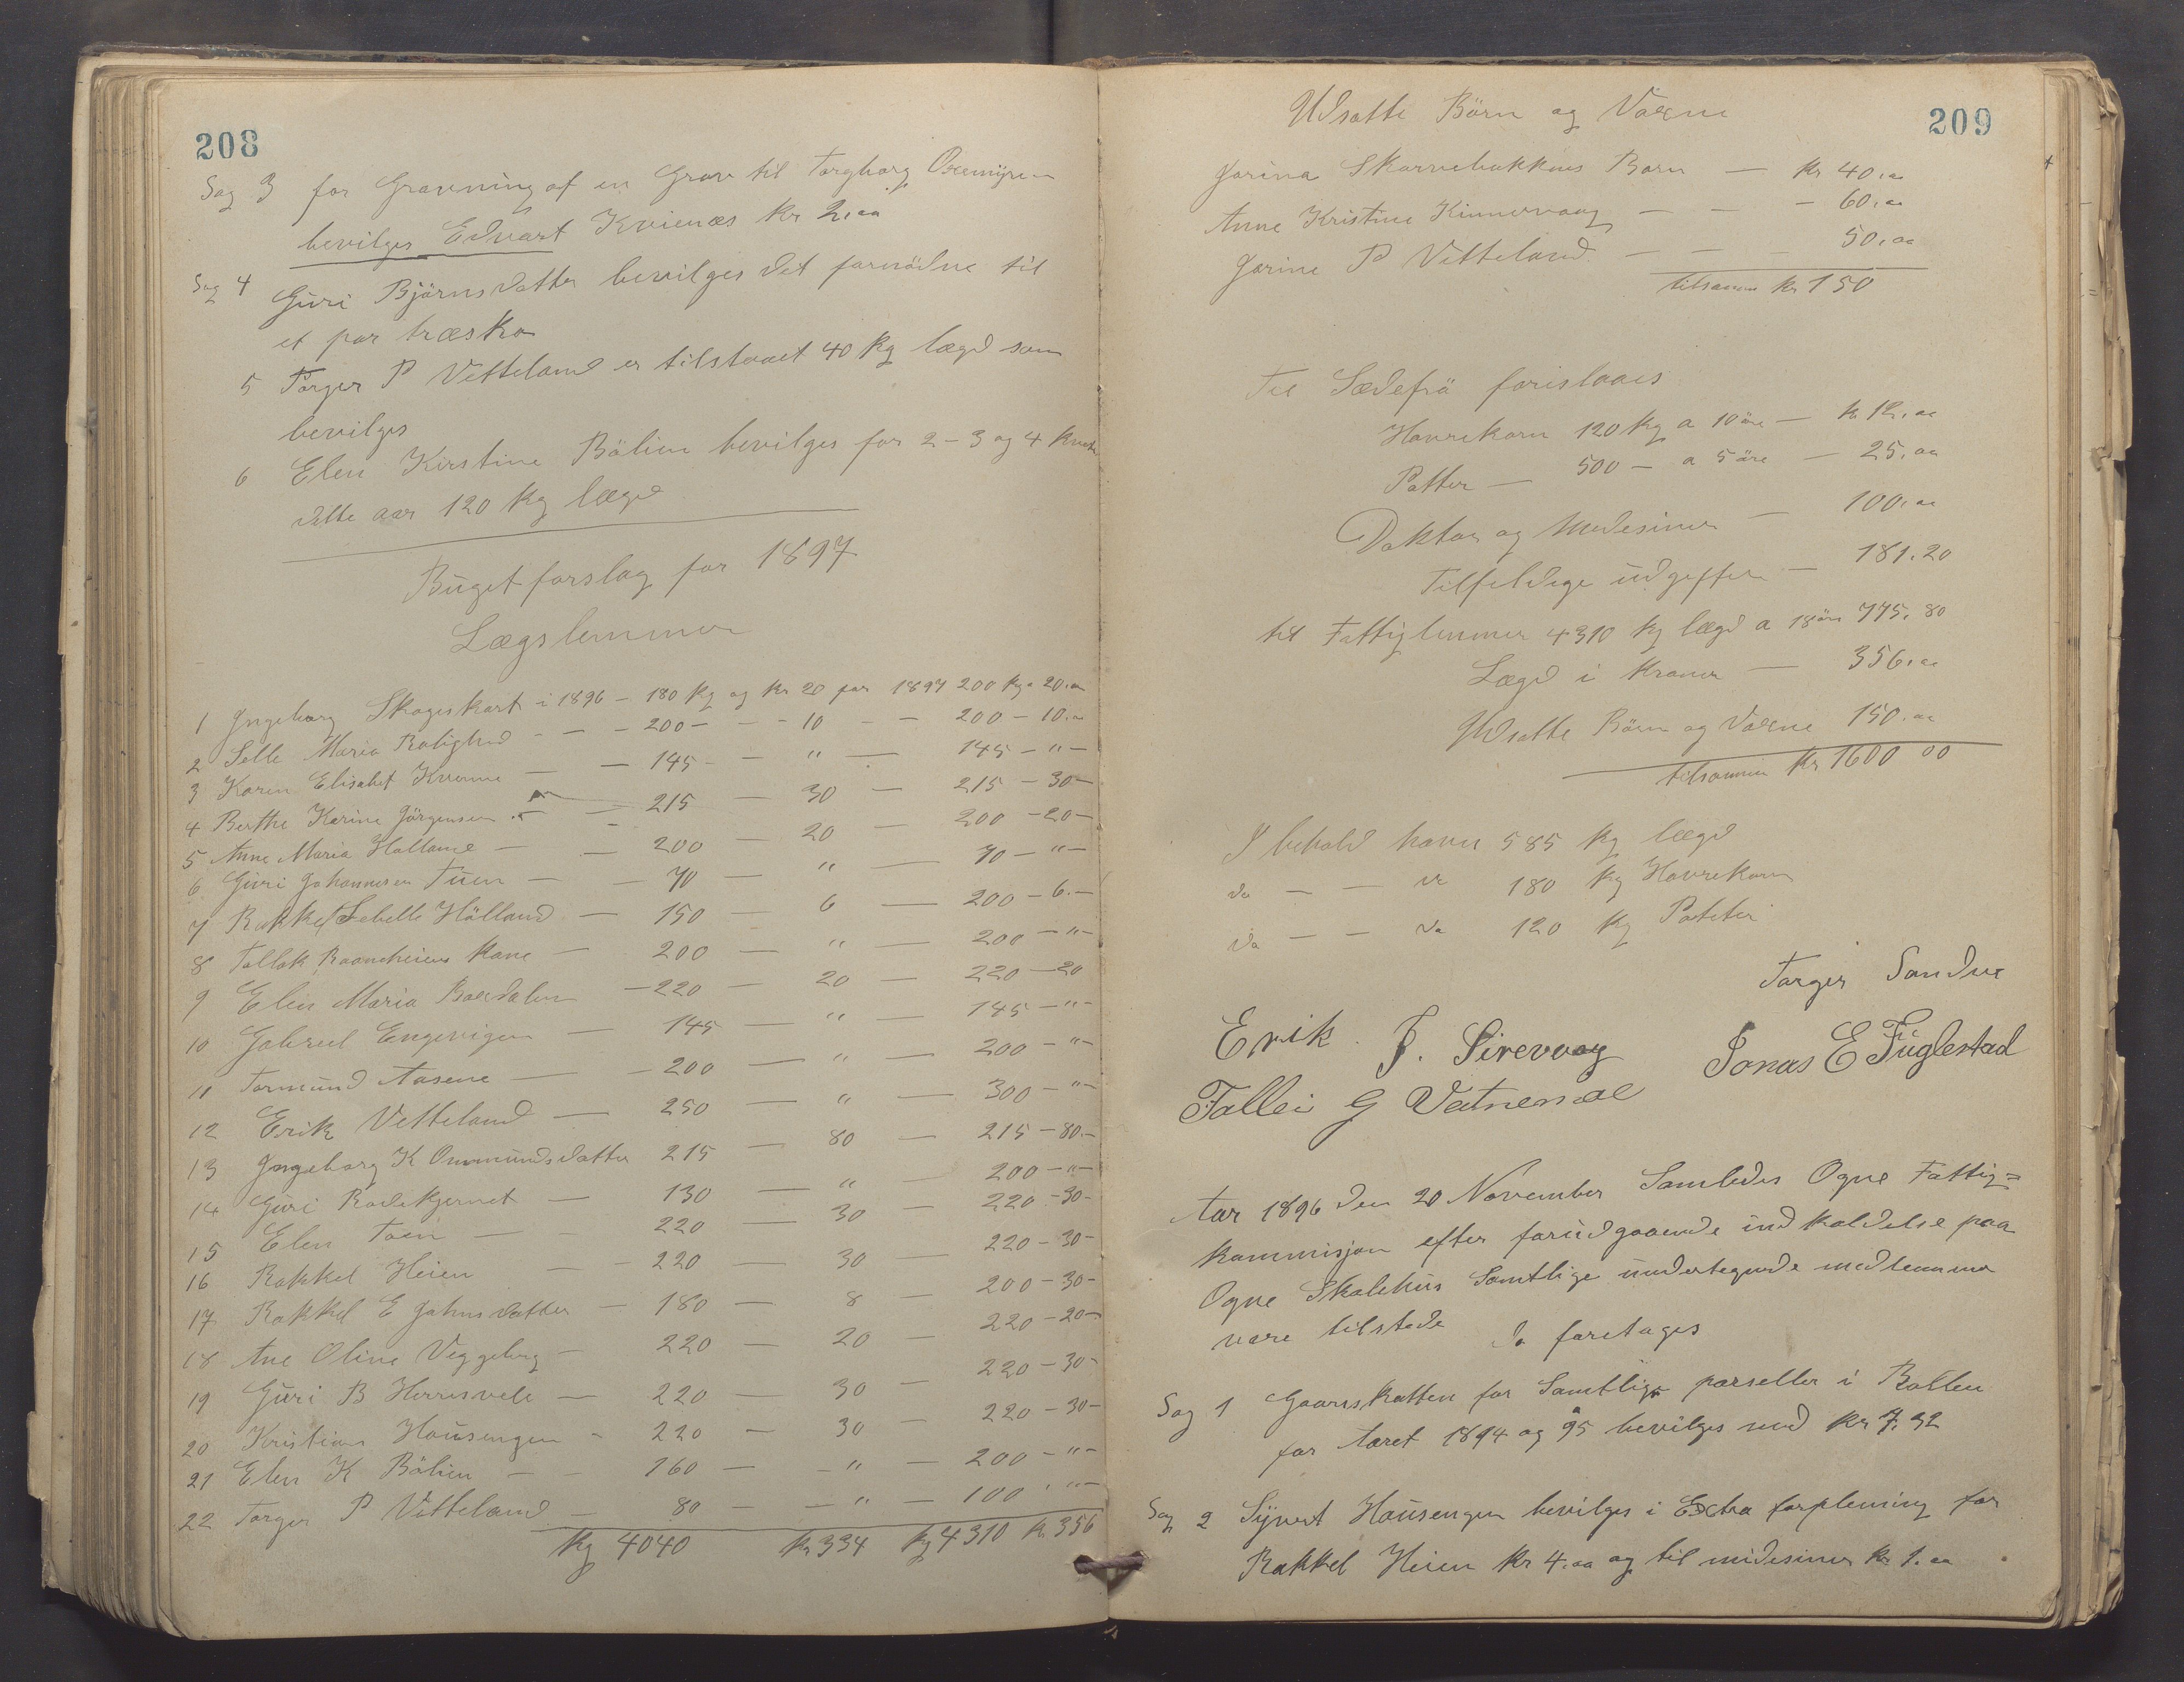 208
Sag 3 for Gravning af en Grav til Torgborg
bevilges Edvart Kvienæs kr 2,00
Sag 4 Guri Björnsdatter bevilges det fornödne til
et par træsko
5 Torger P Vetteland er tilstaaet 40 kg lægd som
bevilges
6 Elen Kirstine Bölien bevilges for 2-3 og 4
dette aar 120 kg lægd
Büget forslag for 1897
Lægslemmer
1 Ingeborg Skogeskart i 1896 - 180 kg og kr 20 for 1897 200 kg - 20.00
2 Selle Maria Rolighed - - - 200 - - - 10 - - 200 - 10.00
3 Karen Elisabet Kvenne - - 145 - - " - 145 - " -
4 Berthe Karina Jörgensen - - 215 - 30 - 215 - 30 -
5 Anne Maria Holland - - 200 - 20 - 200 - 20 -
6 Guri Johannesen Tuen - - 70 - " - 70 - " -
7 Rakkel Sebelle Hölland - 150 - 6 - 200 - 6. -
8 Tollak kone - 200 - " - 200 - " -
9 Elen Maria - 220 - 20 - 220 - 20
10 Gabriel Engevigen - 145 - " - 145 - " -
11 Tormund Aasene - - 200 - " - 200 - " -
12 Erik Vetteland - 250 - " - 300 - " -
13 Ingeborg K Ommundsdatter 215 - 80 - 215 - 80. -
14 Guri Rodekjernet - 130 - " - 200 - " -
15 Elen Toen - - 220 - 30 - 220 - 30 -
16 Rakkel Heien - - 220 - 30 - 220 - 30 -
17 Rakkel E Johnsdatter - 180 - 8 - 200 - 30 -
18 Ane Oline Veggeberg - 220 - 20 - 220 - 20 -
19 Guri B Herresvele - 220 - 30 - 220 - 30 -
20 Kristian Housengen - 220 - 30 - 220 - 30 -
21 Elen K Bölien - - 160 - - " - 200 - " -
22 Torger P Vetteland - 80 - - " - 100 - " -
kg 4040 kr 334 kg 4310 kr 356
209
Udsatte Börn og Voxne
Jorina Skarvebakkens Barn - kr 40,00
Anne Kristine Kinnervaag - - - 60,00
Jorine P Vetteland - - - 50,00
tilsamen kr 150
Til Sædefrö foreslaaes
Havrekorn 120 kg a 10 öre - kr 12,00
Potter - 500 - a 5 öre - 25,00
Doktor og Medesiner - 100,00
Tilfeldige udgifter - 181.20
til Fattiglemmer 4310 kg lægd a 18 öre 775.80
Lægd i kroner - 356,00
Udsatte Börn og Voxne 150,00
tilsammen kr 1600 00
I behold haves 585 kg lægd
do - - do 180 kg Havrekorn
do - - do 120 kg Poteter
Torger Sandve
Erik J. Sirevaag Jonas E Fuglestad
Tollei G Vatnemoe
Aar 1896 den 20 November Samledes Ogne Fattig=
kommisjon efter forudgaaende indkaldelse paa
Ogne Skolehus Samtlige undertegnede medlemmer
vare tilstede da foretages
Sag 1 Gaarsskatten for Samtlige parseller i Rollen
for Aaret 1894 og 95 bevilges med kr 7.32
Sag 2 Syvert Housengen bevilges i Extra forplening for
Rakkel Heien kr 4.00 og til midesiner kr 1.00